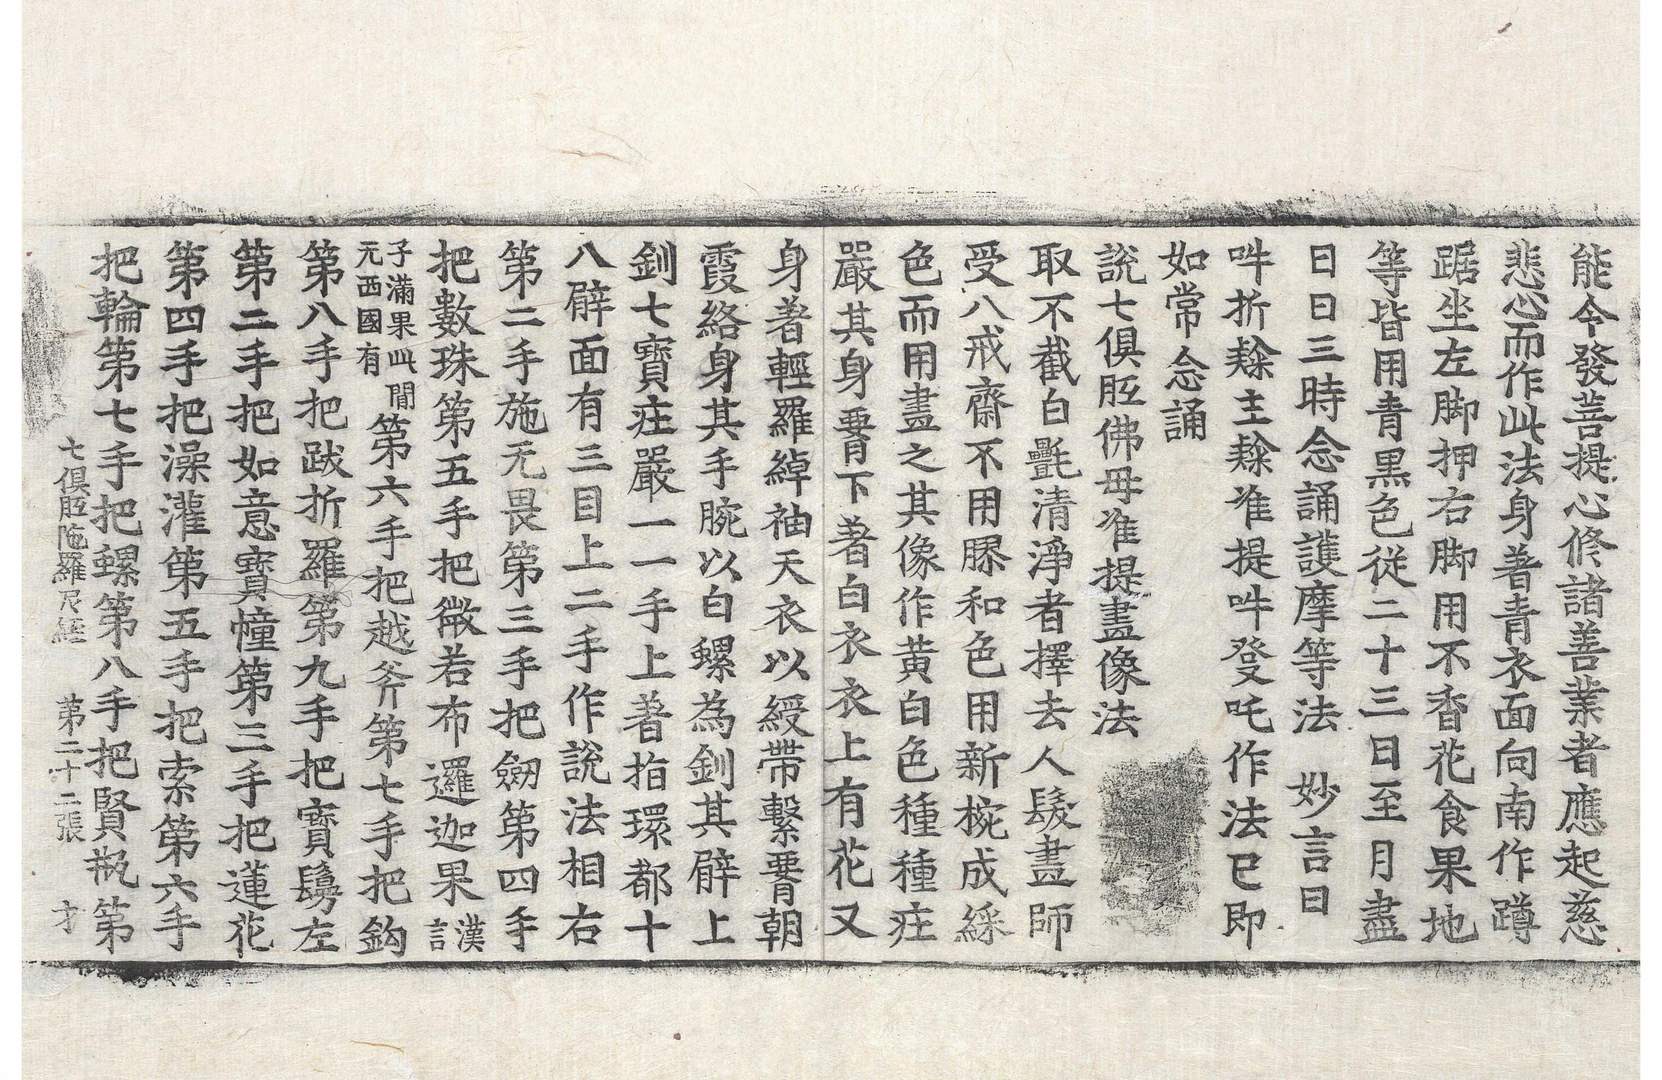 能令發菩提心修諸善業者應起慈
悲心而作此法身著青衣面向南作蹲
踞坐左脚押右脚用不香花食果地
等皆用青黑色從二十三日至月盡
日日三時念誦護摩等法　妙言曰
吽折隸主隸准提吽發吒作法已即
如常念誦
說七俱胝佛母准提畫像法
取不截白㲲清淨者擇去人髮畫師
受八戒齋不用膠和色用新椀成綵
色而用畫之其像作黃白色種種庄
嚴其身䙅下著白衣衣上有花又
身著輕羅綽袖天衣以綬帶繫䙅朝
霞絡身其手腕以白螺為釧其臂上
釧七寶庄嚴一一手上著指環都十
八臂面有三目上二手作說法相右
第二手施无畏第三手把劒第四手
把數珠第五手把微若布邏迦果漢言
子滿果此間无西國有第六手把越斧第七手把鈎
第八手把跋折羅第九手把寶鬘左
第二手把如意寶幢第三手把蓮花
第四手把澡灌第五手把索第六手
把輪第七手把螺第八手把賢瓶第
七俱胝陁羅尼経　第二十二張　才